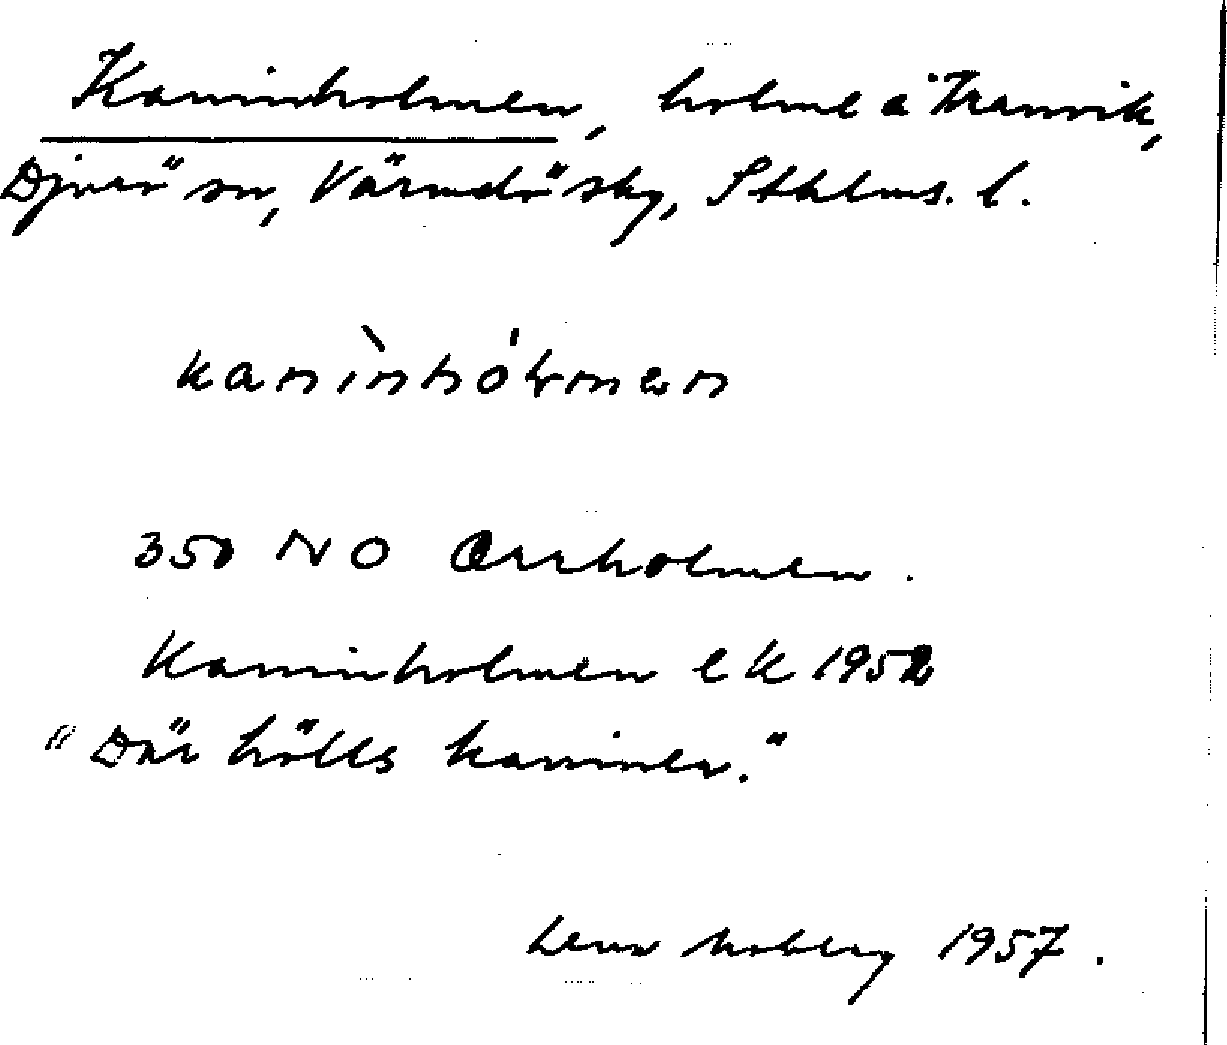 Kaninholmen, holme å Tranvik,
Djurö sn, Värmdö skg, Sthlms. l.
kanìnhólmen
350 NO Orrholmen.
Kaninholmen ek 1952
"Där hölls kaniner."
Lena Moberg 1957.